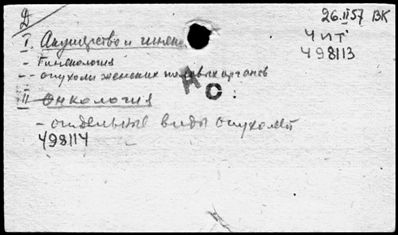 Д 26.II 57 ВК
I. Акушерство и гинек
ЧИТ
498113
- Гинекология
-- опухоли женских половых органов
НО
II Онкология
- отдельные виды опухолей
498114